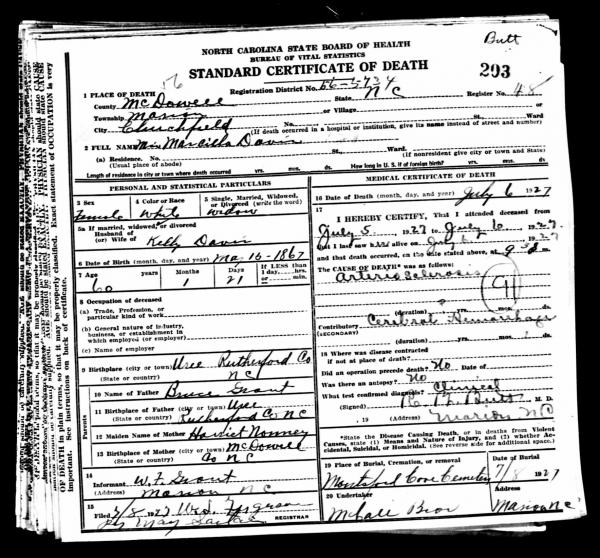 Butt
NORTH CAROLINA STATE BOARD OF HEALTH
BUREAU OF VITAL STATISTICS
STANDARD CERTIFICATE OF DEATH
293
56
Registration District No. 56-5734 Register No. 48
1 PLACE OF DEATH
County McDowell State N C
Township Marion or Village or
City Clinchfield No. St., Ward
(If death occurred in a hospital or institution, give its name instead of street and number)
2 FULL NAME Mrs Marcilha Davis
(a) Residence. No. St., Ward
(Usual place of abode) (If nonresident give city or town and State)
Length of residence in city or town where death occurred yrs. mos. ds. How long in U. S. if of foreign birth? yrs. mos. ds.
PERSONAL AND STATISTICAL PARTICULARS
3 Sex 4 Color or Race 5 Single, Married, Widowed, or Divorced (write the word)
Female White Widow
5a If married, widowed, or divorced
Husband of
(or) Wife of Kelly Davis
6 Date of Birth (month, day, and year) May 15-1867
7 Age Years Months Days If LESS than 1 day, hrs. or min.
60 1 21
8 Occupation of deceased
(a) Trade, Profession, or particular kind of work
(b) General nature of industry, business, or establishment in which employed (or employer)
(c) Name of employer
9 Birthplace (city or town) Uree Rutherford Co
(State or country) N C
Parents
10 Name of Father Bruce Grant
11 Birthplace of Father (city or town) Uree
(State or country) Rutherford Co N C
12 Maiden Name of Mother Harriet Nanney
13 Birthplace of Mother (city or town) McDowell
(State or country) Co N C
14
Informant W. F. Grant
(Address) Marion N C
15
Filed 7/8 1927 Wm. Ferguson
REGISTRAR
MEDICAL CERTIFICATE OF DEATH
16 Date of Death (month, day, and year) July 6 1927
17
I HEREBY CERTIFY, That I attended deceased from
July 5 1927 to July 6 1927
that I last saw h alive on July 6 1927
and that death occurred, on the date stated above, at 9 a
The CAUSE OF DEATH* was as follows:
Arterio Sclerosis
91
(duration) yrs. mos. ds.
Contributory Cerebral Hemorrhage
(SECONDARY)
(duration) yrs. mos. ds.
18 Where was disease contracted
if not at place of death?
Did an operation precede death? No Date of
Was there an autopsy? No
What test confirmed diagnosis? Clinical
(Signed) Butt M. D.
, 19 (Address) Marion N C
*State the Disease Causing Death, or in deaths from Violent Causes, state (1) Means and Nature of Injury, and (2) whether Accidental, Suicidal, or Homicidal. (See reverse side for additional space.)
19 Place of Burial, Cremation, or removal Date of Burial
Montford Cove Cemetery 7/8 1927
20 Undertaker (Address)
McCall Bros Marion N C